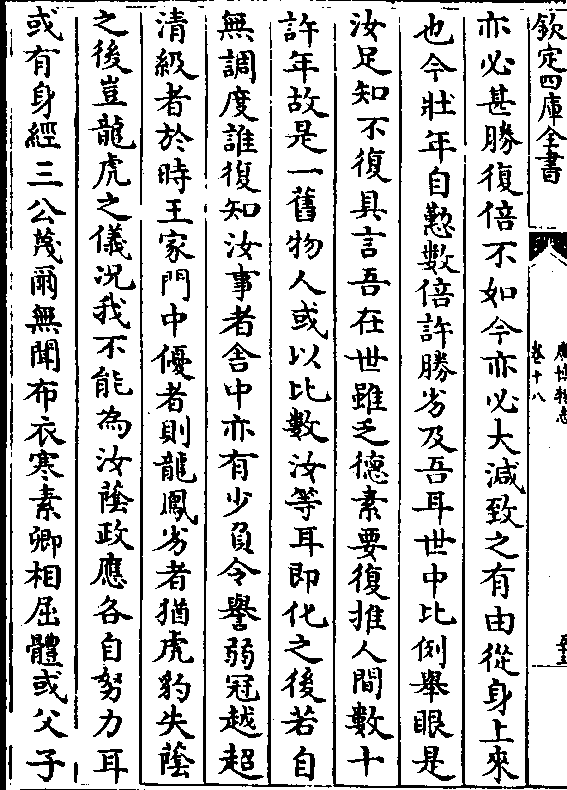 欽定四庫全書
廣博物志
卷十八
亦必甚勝復倍不如今亦必大減致之有由從身上來
也今壯年自懃數倍許勝劣及吾耳世中比例舉眼是
汝足知不復具言吾在世雖乏德素要復推人間數十
許年故是一舊物人或以比數汝等耳即化之後若自
無調度誰復知汝事者舍中亦有少負令譽弱冠越超
清級者於時王家門中優者則龍鳳劣者猶虎豹失蔭
之後豈龍虎之儀況我不能為汝蔭政應各自努力耳
或有身經三公蔑爾無聞布衣寒素卿相屈體或父子